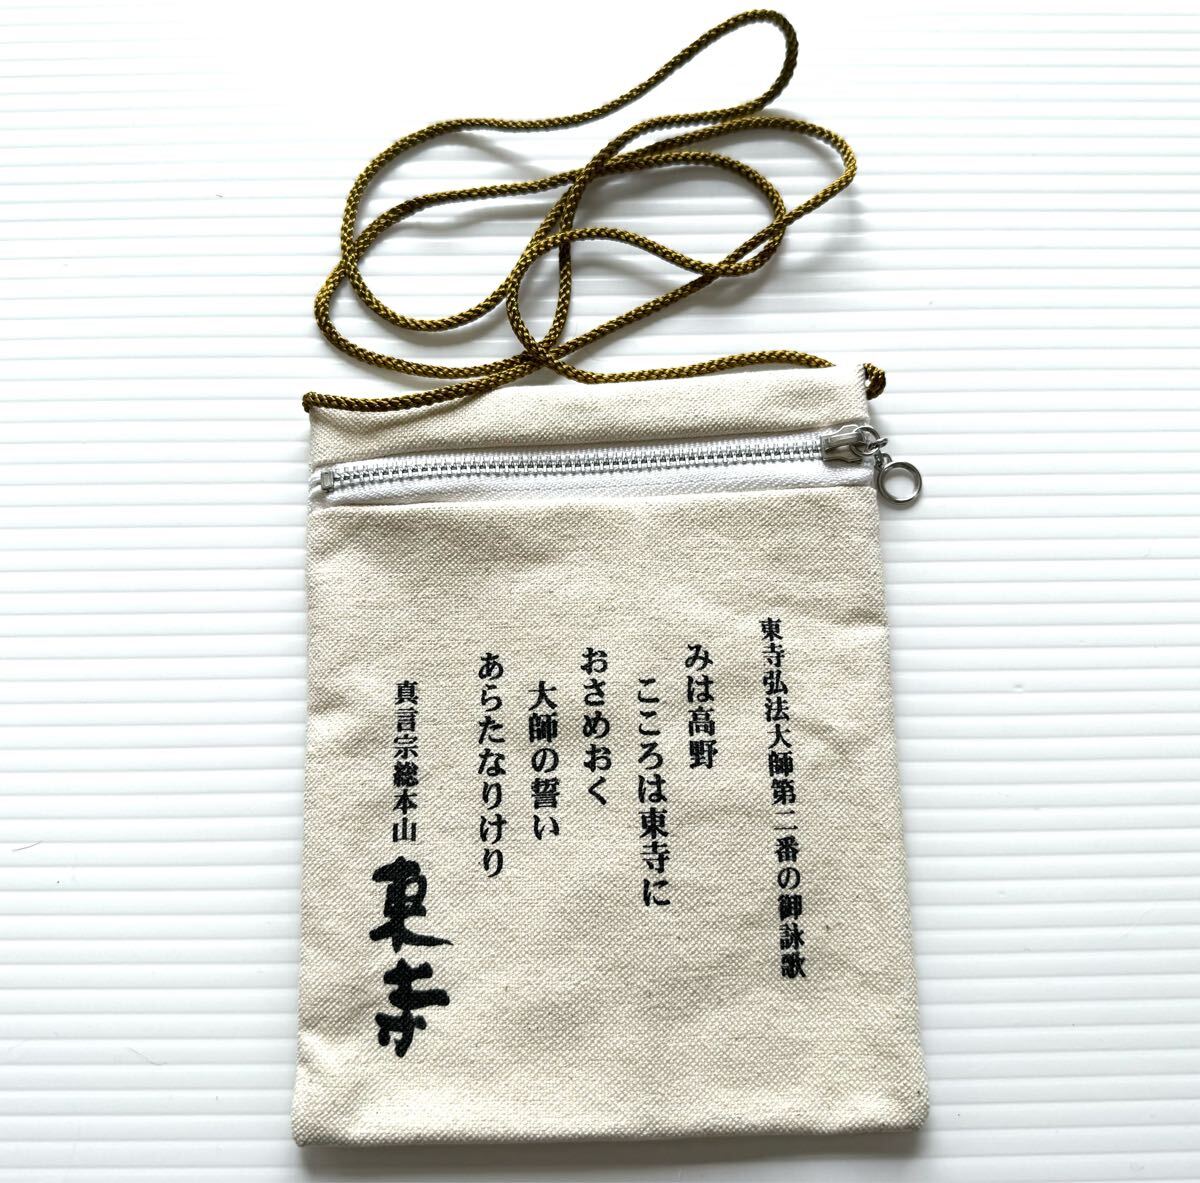 東寺弘法大師第二番の御詠歌
みは高野
こころは東寺に
おさめおく
大師の誓い
あらたなりけり
真言宗総本山
東寺